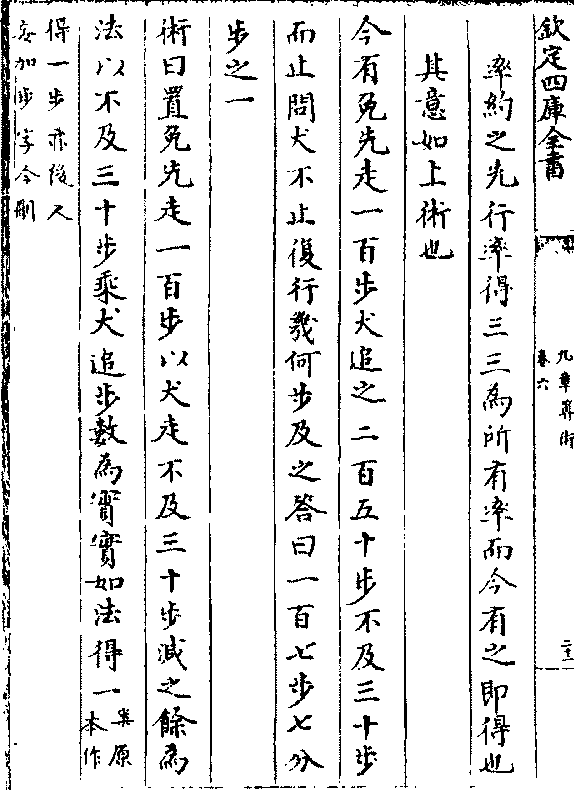 欽定四庫全書
九章算術
卷六
率約之先行率得三三為所有率而今有之即得也
其意如上術也
今有兔先走一百步犬追之二百五十步不及三十步
而止問犬不止復行幾何步及之答曰一百七步七分
步之一
術曰置兔先走一百步以犬走不及三十步減之餘為
法以不及三十步乘犬追步數為實實如法得一
案原
本作
得一步亦後人
妄加步字今刪